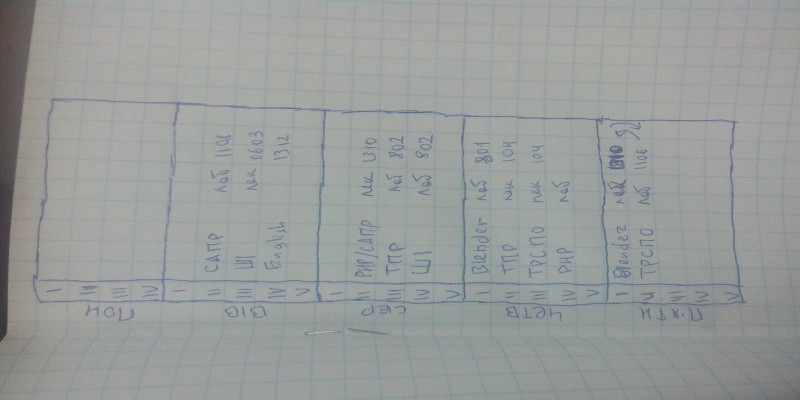 ПОН
I
II
III
IV
ВІВ
I
II САПР лаб 1108
III ШІ лек 0603
IV English 1312
V
СЕР
I
II РНР/САПР лек 1310
III ТПР лаб 802
IV ШІ лаб 802
V
ЧЕТВ
I Blender лаб 801
II ТПР лек 104
III ТРСПО лек 104
IV РНР лаб
V
П'ЯТН
I Blender лек 1310
II ТРСПО лаб 1106
III
IV
V